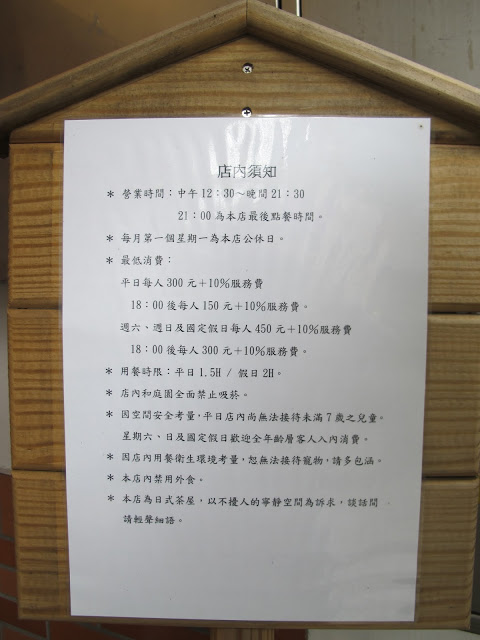 店內須知
＊ 營業時間：中午 12：30～晚間 21：30
21：00 為本店最後點餐時間。
＊ 每月第一個星期一為本店公休日。
＊ 最低消費：
平日每人 300 元＋10%服務費
18：00 後每人 150 元＋10%服務費。
週六、週日及國定假日每人 450 元＋10%服務費
18：00 後每人 300 元＋10%服務費。
＊ 用餐時限：平日 1.5H / 假日 2H。
＊ 店內和庭園全面禁止吸菸。
＊ 因空間安全考量，平日店內尚無法接待未滿 7 歲之兒童。
星期六、日及國定假日歡迎全年齡層客人入內消費。
＊ 因店內用餐衛生環境考量，恕無法接待寵物，請多包涵。
＊ 本店內禁用外食。
＊ 本店為日式茶屋，以不擾人的寧靜空間為訴求，談話間
請輕聲細語。